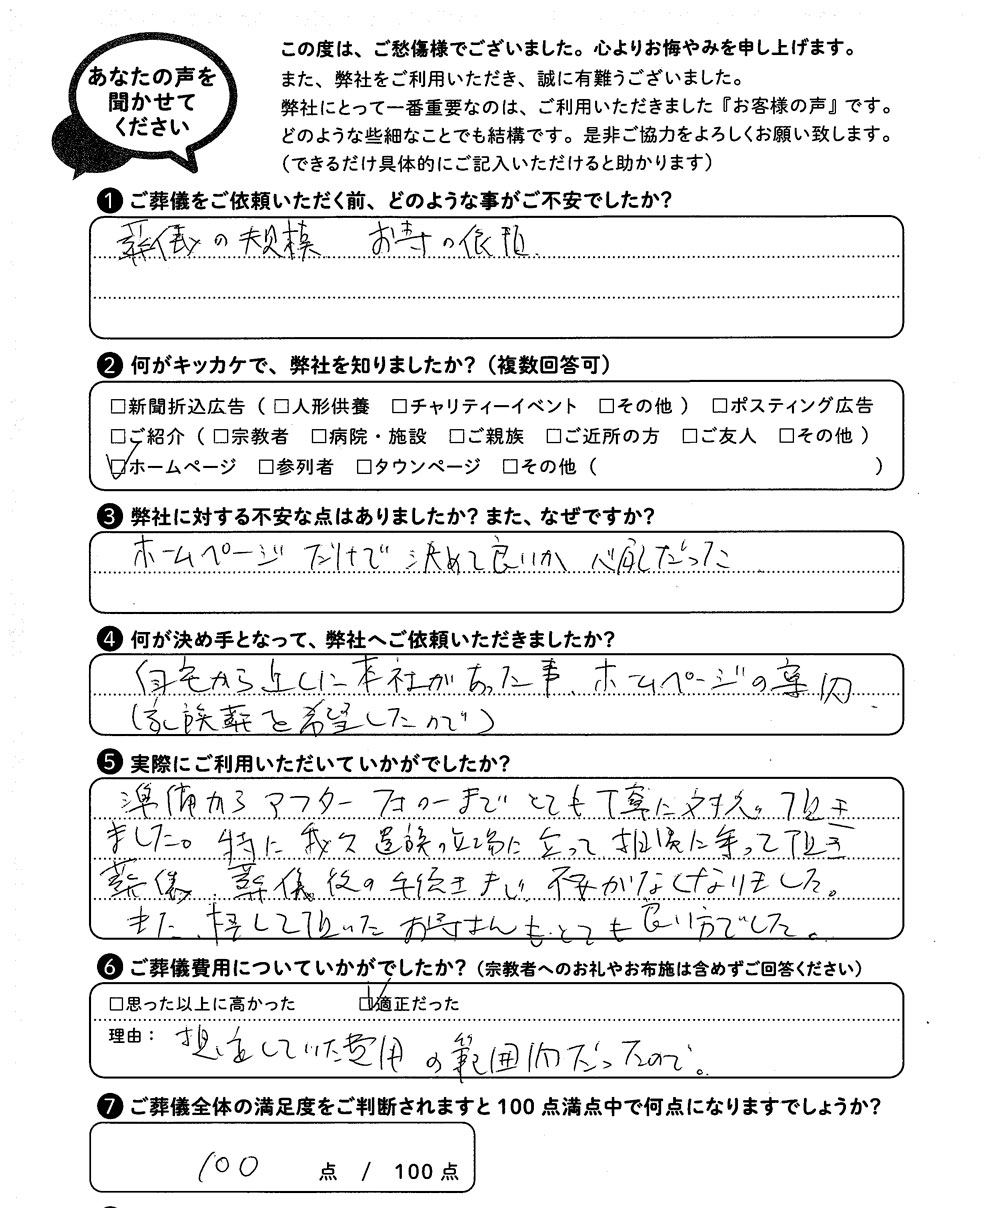 あなたの声を
聞かせて
ください
この度は、ご愁傷様でございました。心よりお悔やみを申し上げます。
また、弊社をご利用いただき、誠に有難うございました。
弊社にとって一番重要なのは、ご利用いただきました『お客様の声』です。
どのような些細なことでも結構です。是非ご協力をよろしくお願い致します。
(できるだけ具体的にご記入いただけると助かります)
1 ご葬儀をご依頼いただく前、どのような事がご不安でしたか?
葬儀の規模 お寺の依頼
2 何がキッカケで、弊社を知りましたか?(複数回答可)
□新聞折込広告(□人形供養 □チャリティーイベント □その他) □ポスティング広告
□ご紹介(□宗教者 □病院・施設 □ご親族 □ご近所の方 □ご友人 □その他)
☑ホームページ □参列者 □タウンページ □その他( )
3 弊社に対する不安な点はありましたか?また、なぜですか?
ホームページだけで決めて良いか心配だった
4 何が決め手となって、弊社へご依頼いただきましたか?
自宅から近くに本社があった事、ホームページの
(家族葬を希望したので)
5 実際にご利用いただいていかがでしたか?
準備からアフターフォローまでとても丁寧に対応頂き
ました。特に我々遺族の立場に立って相談に乗って頂き
葬儀、葬儀後の手続きまで不安がなくなりました。
また、していただいたお寺さんもとても良い方でした。
6 ご葬儀費用についていかがでしたか?(宗教者へのお礼やお布施は含めずご回答ください)
□思った以上に高かった ☑適正だった
理由: 想定していた費用の範囲内だったので。
7 ご葬儀全体の満足度をご判断されますと100点満点中で何点になりますでしょうか?
100 点 / 100点